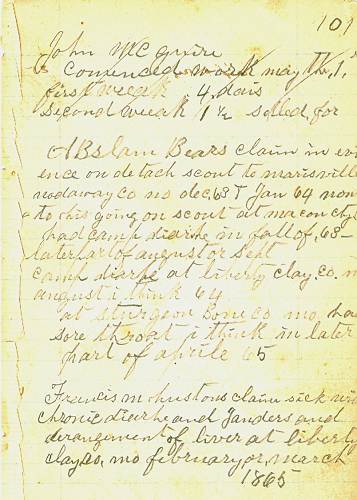 101
John McGuire
Comenced work may th, 1,
first weeak 4, dais
second weeak 1 1/2 setled, for
ABslam Bears claim in evi
ence on detach scout to marisville
nodaway co mo dec, 63 T Jan 64
to this going on scout at macon cty
had camp diarhe in fall of, 63 -
later far of august or Sept
camp diarhe at liberty clay, co, m
august i think 64
at sturgeon Bone, co mo, ha
sore throat i think in later
part of aprile 65
Francis m ohustons claim sick wi
chronic diarhe and Janders and
derangement of liver at liberty
clay, co, mo february, or, march
1865